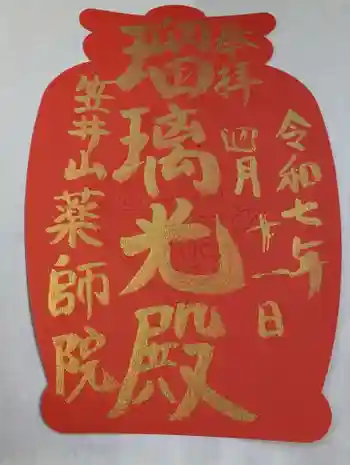 奉拝
令和七年
四月廿一日
瑠璃光殿
笠井山薬師院